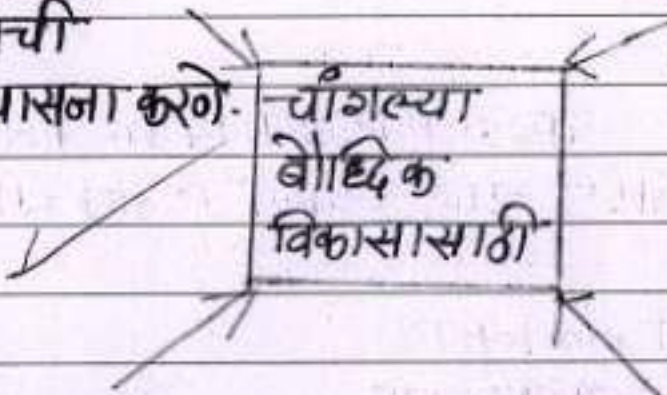 ची
ासना करणे.
चांगल्या
बौध्दिक
विकासासाठी